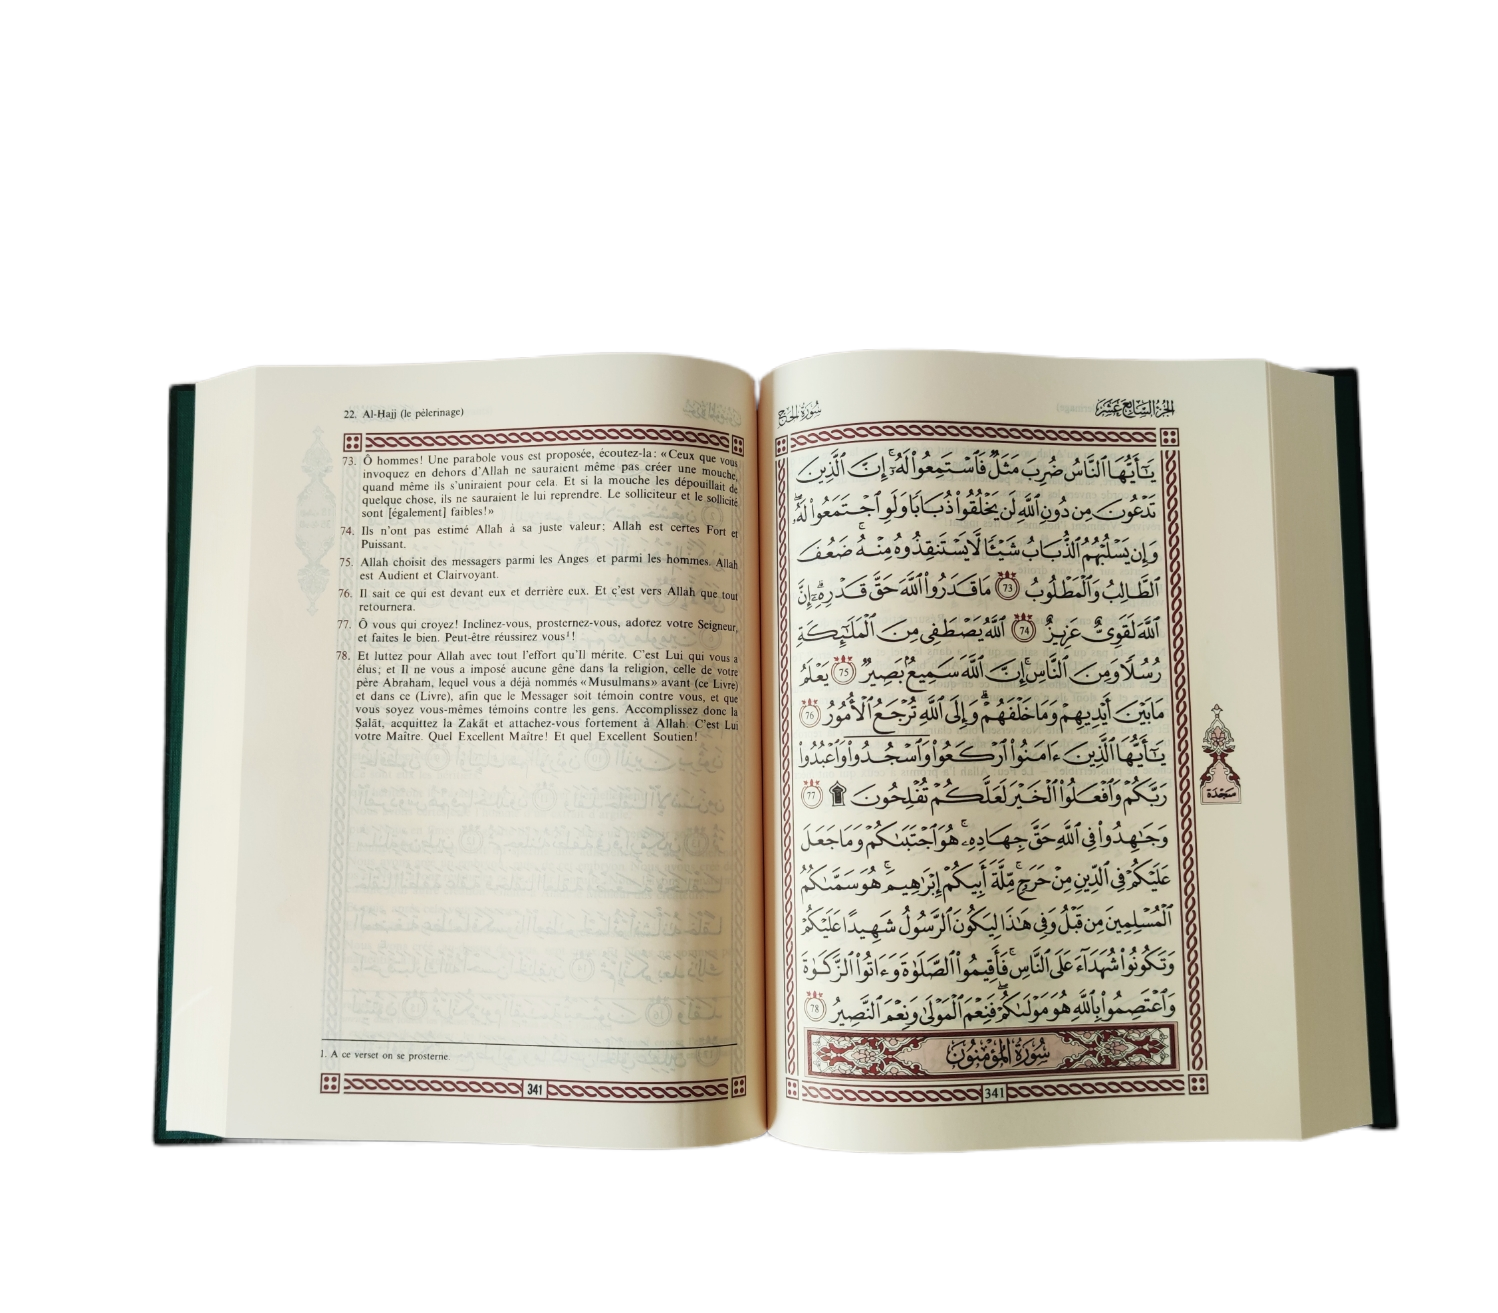 22. Al-Ḥajj (le pèlerinage)
73. Ô hommes! Une parabole vous est proposée, écoutez-la: «Ceux que vous
invoquez en dehors d'Allah ne sauraient même pas créer une mouche,
quand même ils s'uniraient pour cela. Et si la mouche les dépouillait de
quelque chose, ils ne sauraient le lui reprendre. Le solliciteur et le sollicité
sont [également] faibles!»
74. Ils n'ont pas estimé Allah à sa juste valeur; Allah est certes Fort et
Puissant.
75. Allah choisit des messagers parmi les Anges et parmi les hommes. Allah
est Audient et Clairvoyant.
76. Il sait ce qui est devant eux et derrière eux. Et c'est vers Allah que tout
retournera.
77. Ô vous qui croyez! Inclinez-vous, prosternez-vous, adorez votre Seigneur,
et faites le bien. Peut-être réussirez vous¹!
78. Et luttez pour Allah avec tout l'effort qu'Il mérite. C'est Lui qui vous a
élus; et Il ne vous a imposé aucune gêne dans la religion, celle de votre
père Abraham, lequel vous a déjà nommés «Musulmans» avant (ce Livre)
et dans ce (Livre), afin que le Messager soit témoin contre vous, et que
vous soyez vous-mêmes témoins contre les gens. Accomplissez donc la
Ṣalât, acquittez la Zakât et attachez-vous fortement à Allah. C'est Lui
votre Maître. Quel Excellent Maître! Et quel Excellent Soutien!
1. A ce verset on se prosterne.
341
الجزء السابع عشر
سورة الحج
يَٰٓأَيُّهَا ٱلنَّاسُ ضُرِبَ مَثَلٌ فَٱسْتَمِعُوا۟ لَهُۥٓ ۚ إِنَّ ٱلَّذِينَ
تَدْعُونَ مِن دُونِ ٱللَّهِ لَن يَخْلُقُوا۟ ذُبَابًا وَلَوِ ٱجْتَمَعُوا۟ لَهُۥ ۖ
وَإِن يَسْلُبْهُمُ ٱلذُّبَابُ شَيْـًٔا لَّا يَسْتَنقِذُوهُ مِنْهُ ۚ ضَعُفَ
ٱلطَّالِبُ وَٱلْمَطْلُوبُ 73 مَا قَدَرُوا۟ ٱللَّهَ حَقَّ قَدْرِهِۦٓ ۗ إِنَّ
ٱللَّهَ لَقَوِىٌّ عَزِيزٌ 74 ٱللَّهُ يَصْطَفِى مِنَ ٱلْمَلَٰٓئِكَةِ
رُسُلًا وَمِنَ ٱلنَّاسِ ۚ إِنَّ ٱللَّهَ سَمِيعٌۢ بَصِيرٌ 75 يَعْلَمُ
مَا بَيْنَ أَيْدِيهِمْ وَمَا خَلْفَهُمْ ۗ وَإِلَى ٱللَّهِ تُرْجَعُ ٱلْأُمُورُ 76
يَٰٓأَيُّهَا ٱلَّذِينَ ءَامَنُوا۟ ٱرْكَعُوا۟ وَٱسْجُدُوا۟ وَٱعْبُدُوا۟
رَبَّكُمْ وَٱفْعَلُوا۟ ٱلْخَيْرَ لَعَلَّكُمْ تُفْلِحُونَ ۩ 77
وَجَٰهِدُوا۟ فِى ٱللَّهِ حَقَّ جِهَادِهِۦ ۚ هُوَ ٱجْتَبَىٰكُمْ وَمَا جَعَلَ
عَلَيْكُمْ فِى ٱلدِّينِ مِنْ حَرَجٍ ۚ مِّلَّةَ أَبِيكُمْ إِبْرَٰهِيمَ ۚ هُوَ سَمَّىٰكُمُ
ٱلْمُسْلِمِينَ مِن قَبْلُ وَفِى هَٰذَا لِيَكُونَ ٱلرَّسُولُ شَهِيدًا عَلَيْكُمْ
وَتَكُونُوا۟ شُهَدَآءَ عَلَى ٱلنَّاسِ ۚ فَأَقِيمُوا۟ ٱلصَّلَوٰةَ وَءَاتُوا۟ ٱلزَّكَوٰةَ
وَٱعْتَصِمُوا۟ بِٱللَّهِ هُوَ مَوْلَىٰكُمْ ۖ فَنِعْمَ ٱلْمَوْلَىٰ وَنِعْمَ ٱلنَّصِيرُ 78
سجدة
سُورَةُ المُؤْمِنُونَ
341